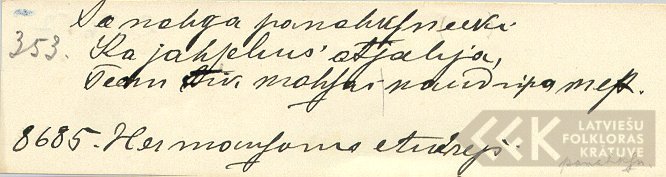 Sanahza panahksneeki
353. Ka jahjelus' atjahja,
Teem tik mahsas naudiņa mest.
8685. Hermansons Andrejs.
LATVIEŠU
FOLKLORAS
KRĀTUVE